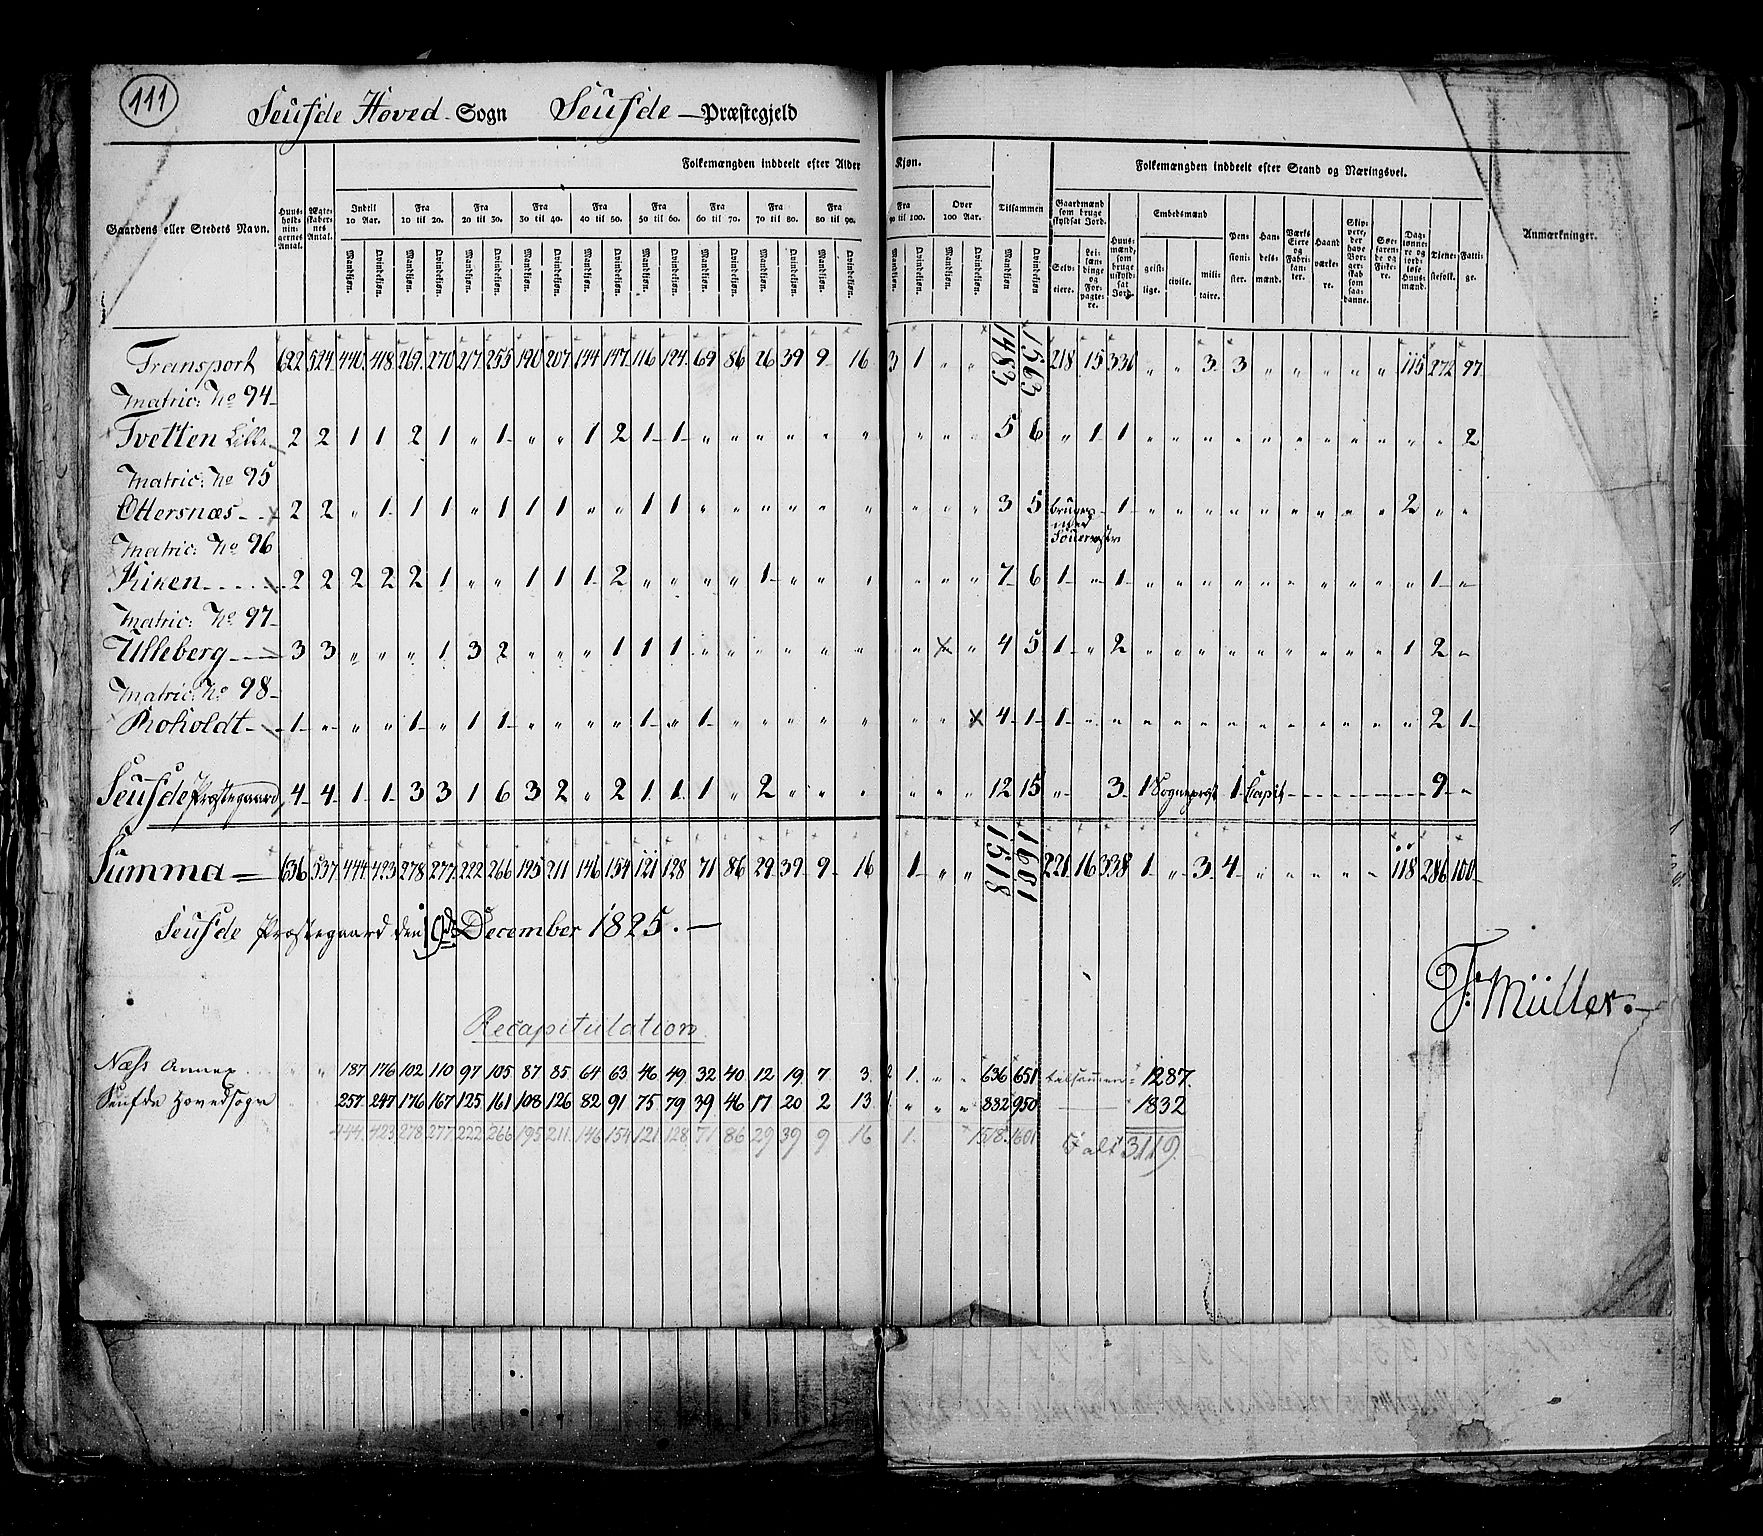 111
Seufde Hoved Sogn Seufde Præstegjeld
Folkemængden inddeelt efter Alder Kjøn. Folkemængden inddeelt efter Stand og Næringsvei.
Gaardens eller Stedets Navn. Huus-holdningernes Antal. Ægteskabernes Antal. Indtil 10 Aar. Fra 10 til 20. Fra 20 til 30. Fra 30 til 40. Fra 40 til 50. Fra 50 til 60. Fra 60 til 70. Fra 70 til 80. Fra 80 til 90. Fra 90 til 100. Over 100 Aar. Tilsammen Gaardmænd som bruge skyldsat Jord. Huusmænd, som bruge uskyldsat Jord. Embedsmænd Pensionister. Handelsmænd. Værks Eiere og Fabrikanter. Haandværkere. Skippere, der have Borgerskab som saadanne. Søefarende og Fiskere. Daglønnere og jordløse Huusmænd. Tjenestefolk. Fattige. Anmærkninger.
Mandkjøn. Qvindekjøn. Mandkjøn. Qvindekjøn. Mandkjøn. Qvindekjøn. Mandkjøn. Qvindekjøn. Mandkjøn. Qvindekjøn. Mandkjøn. Qvindekjøn. Mandkjøn. Qvindekjøn. Mandkjøn. Qvindekjøn. Mandkjøn. Qvindekjøn. Mandkjøn. Qvindekjøn. Mandkjøn. Qvindekjøn. Mandkjøn. Qvindekjøn. Selveiere. Leilændinge og Forpagtere. geistlige. civile. militaire.
Transport 622 524 440 418 269 270 217 255 190 207 144 147 116 124 69 86 26 39 9 16 3 1 " " 1483 1563 218 15 331 " " 3 3 " " " " " 115 272 97
Matric: No 94
Tvetten Lille 2 2 1 1 2 1 " 1 " " 1 2 1 1 " " " " " " " " " 5 6 " 1 1 " " " " " " " " " " " 2
Matric: No 95
Ottersnæs 2 2 " 1 1 1 " 1 1 1 " " 1 1 " " " " " " " " " 3 5 1 " " " " " " " " " 2 " "
Matric: No 96
Kiken 2 2 2 2 2 1 " " 1 1 1 2 " " " " 1 " " " " " " 7 6 1 " 1 " " " " " " " " " " 1 "
Matric: No 97
Ulleberg 3 3 " " " 1 3 2 " " " 1 1 1 " " " " " " " " 4 5 1 " 2 " " " " " " " " " 1 2 "
Matric: No 98
Roholdt 1 " " " 1 " 1 1 " " " " 1 " 1 " " " " " " " 4 1 1 " " " " " " " " " " " " 2 1
Seufde Præstegaard 4 4 1 1 3 3 1 6 3 2 " 2 1 1 1 " 2 " " " " " " 12 15 " 3 1 Sogneprest 1 Capit 9 "
Summa 636 537 444 423 278 277 222 266 195 211 146 154 121 128 71 86 29 39 9 16 1 " " 1518 1601 221 16 338 1 " 3 4 " " " " " " 118 286 100
Seufde Præstegaard den 19de December 1825.
F: Müller.
Recapitulation
Næss Annex 187 176 102 110 97 105 87 85 64 63 46 49 32 40 12 19 7 3 2 1 " " 636 651 tilsammen 1287.
Seufde Hovedsogn 257 247 176 167 125 161 108 126 82 91 75 79 39 46 17 20 2 13 1 " " " 882 950 1832
444 423 278 277 222 266 195 211 146 154 121 128 71 86 29 39 9 16 1 1518 1601 I alt 3119.